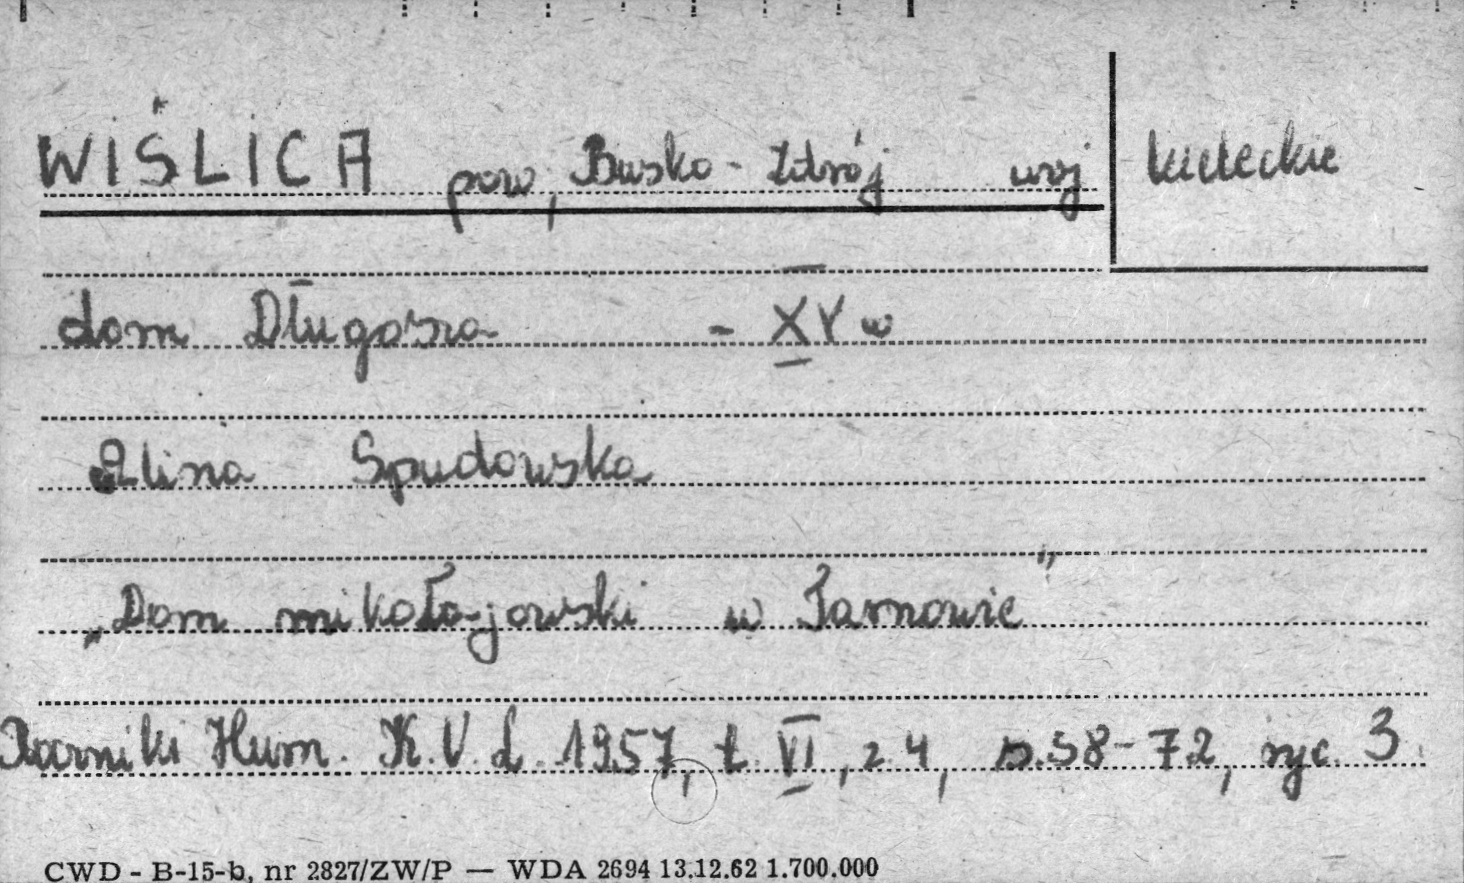 WIŚLICA pow, Busko-Zdrój woj kieleckie
dom Długosza - XV w
Alina Spudowska
„Dom mikołajowski w Tarnowie”
Roczniki Hum. K.U.L. 1957, t. VI, z 4, s. 58-72, ryc. 3.
CWD - B-15-b, nr 2827/ZW/P — WDA 2694 13.12.62 1.700.000